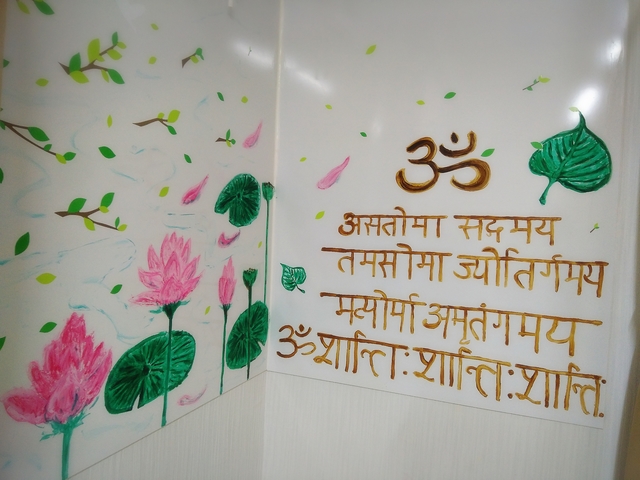 ॐ
असतोमा सद्गमय
तमसोमा ज्योतिर्गमय
मत्योर्मा अमृतंगमय
ॐ शान्तिः शान्तिः शान्तिः